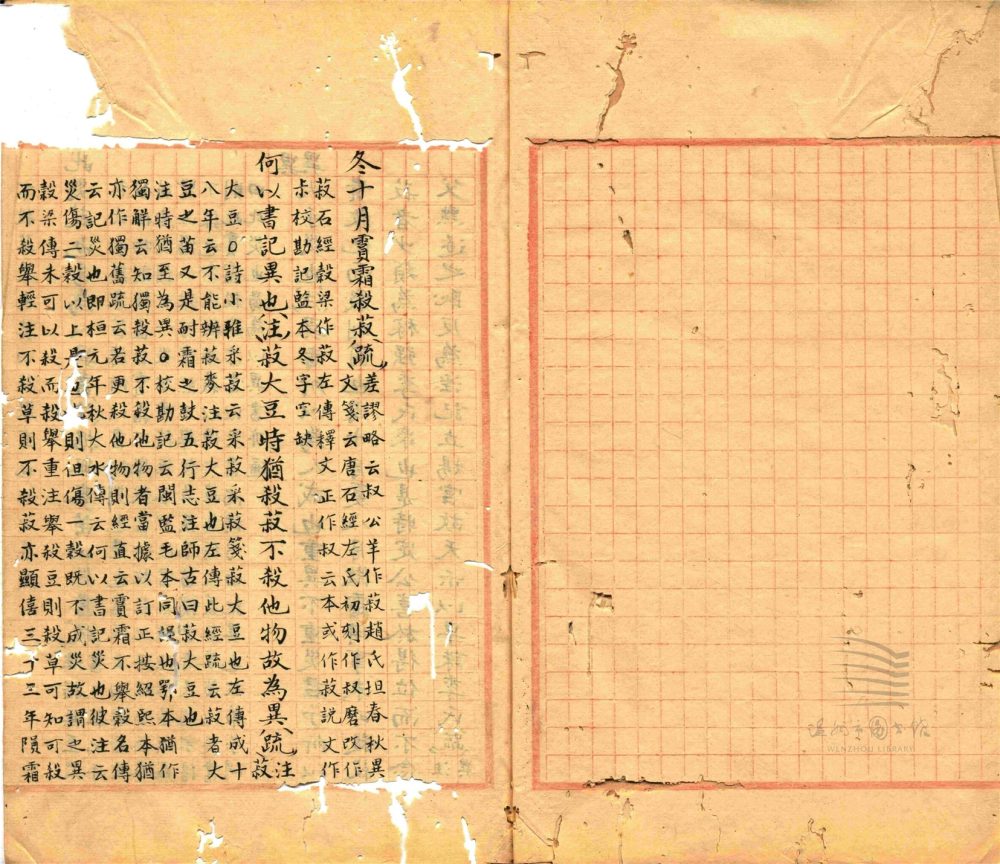 冬十月霣霜殺菽(疏)差謬略云叔公羊作菽趙氏坦春秋異
文箋云唐石經左氏初刻作叔磨改作
菽石經穀梁作菽左傳釋文正作叔云本或作菽説文作
尗校勘記監本冬字空缺
何以書記異也(注)菽大豆時猶殺菽不殺他物故為異(疏)注
菽
大豆○詩小雅采菽云采菽采菽箋菽大豆也左傳成十
八年云不能辨菽麥注菽大豆也左傳此經疏云菽者大
豆之苗又是耐霜之穀五行志注師古曰菽大豆也
注時猶至為異○校勘記云閩監毛本同誤也鄂本猶作
獨解云知獨殺菽不殺他物者當據以訂正按紹熙本猶
亦作獨舊疏云若更殺他物則經直云霣霜不舉穀名傳
云記災也即桓元年秋大水傳云何以書記災也彼注云
災傷二穀以上是也則但傷一穀既不成災故謂之異
穀梁傳未可以殺而殺舉重注舉殺豆則殺草可知可殺
而不殺舉輕注不殺草則不殺菽亦顯僖三十三年隕霜
温州市圖书館
WENZHOU LIBRARY